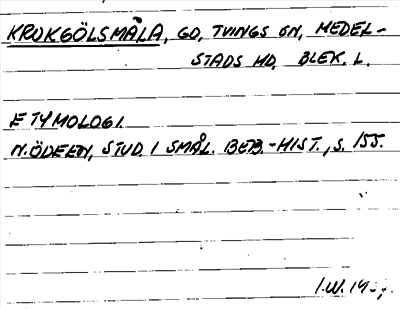 KROKGÖLSMÅLA, GD, TVINGS SN, MEDEL-
STADS HD, BLEK. L.
ETYMOLOGI.
N. ÖDEEN, STUD. I SMÅL. BEB.-HIST., S. 155.
I.W.